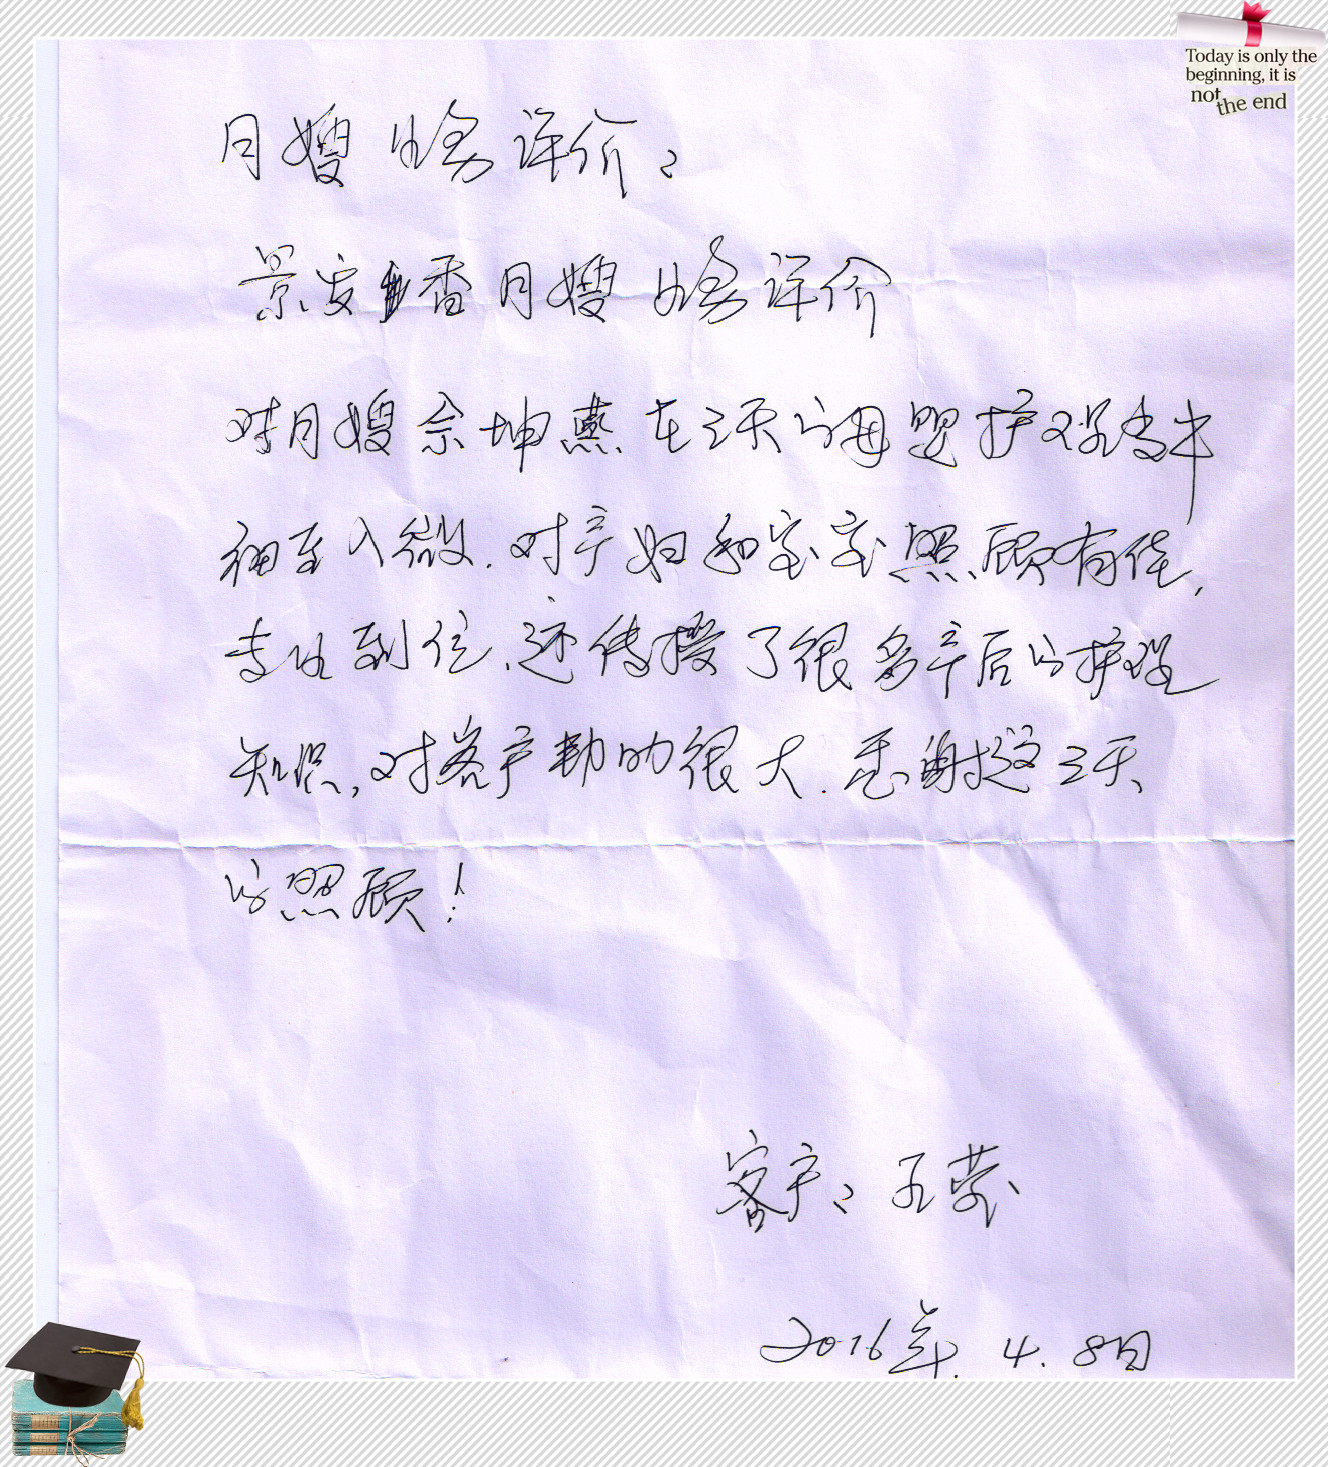 Today is only the
beginning, it is
not the end
月嫂服务评价:
月嫂服务评价
对月嫂佘坤燕在三天的母婴护理当中
细至入微.对产妇和宝宝照顾有佳,
专业到位.还传授了很多产后的护理
知识,对客户帮助很大.感谢这三天
的照顾!
客户: 王莹
2016年.4.8日